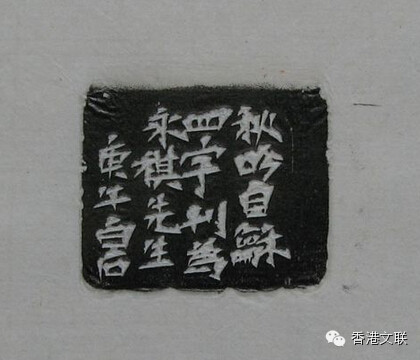 秋吟自穌
四字刊為
永祺先生
庚午白石
香港文联